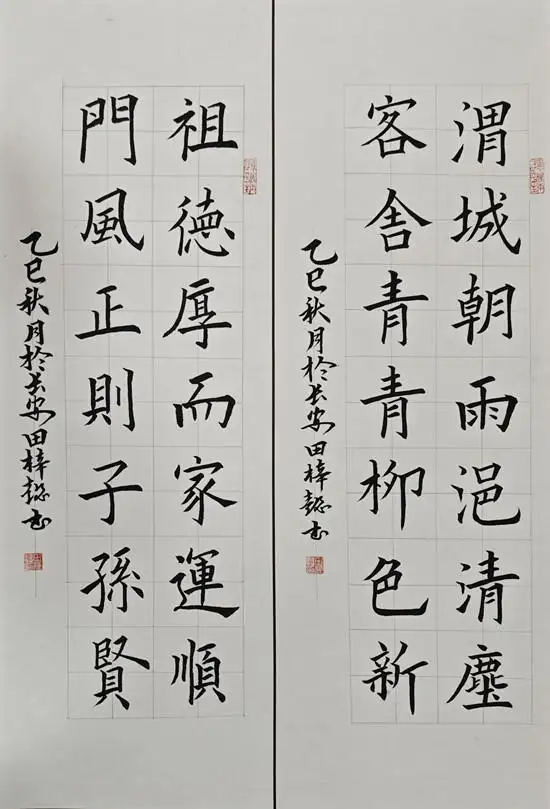 渭城朝雨浥清塵
客舍青青柳色新
乙巳秋月於长安田梓懿书
祖德厚而家運順
門風正則子孫賢
乙巳秋月於长安田梓懿书